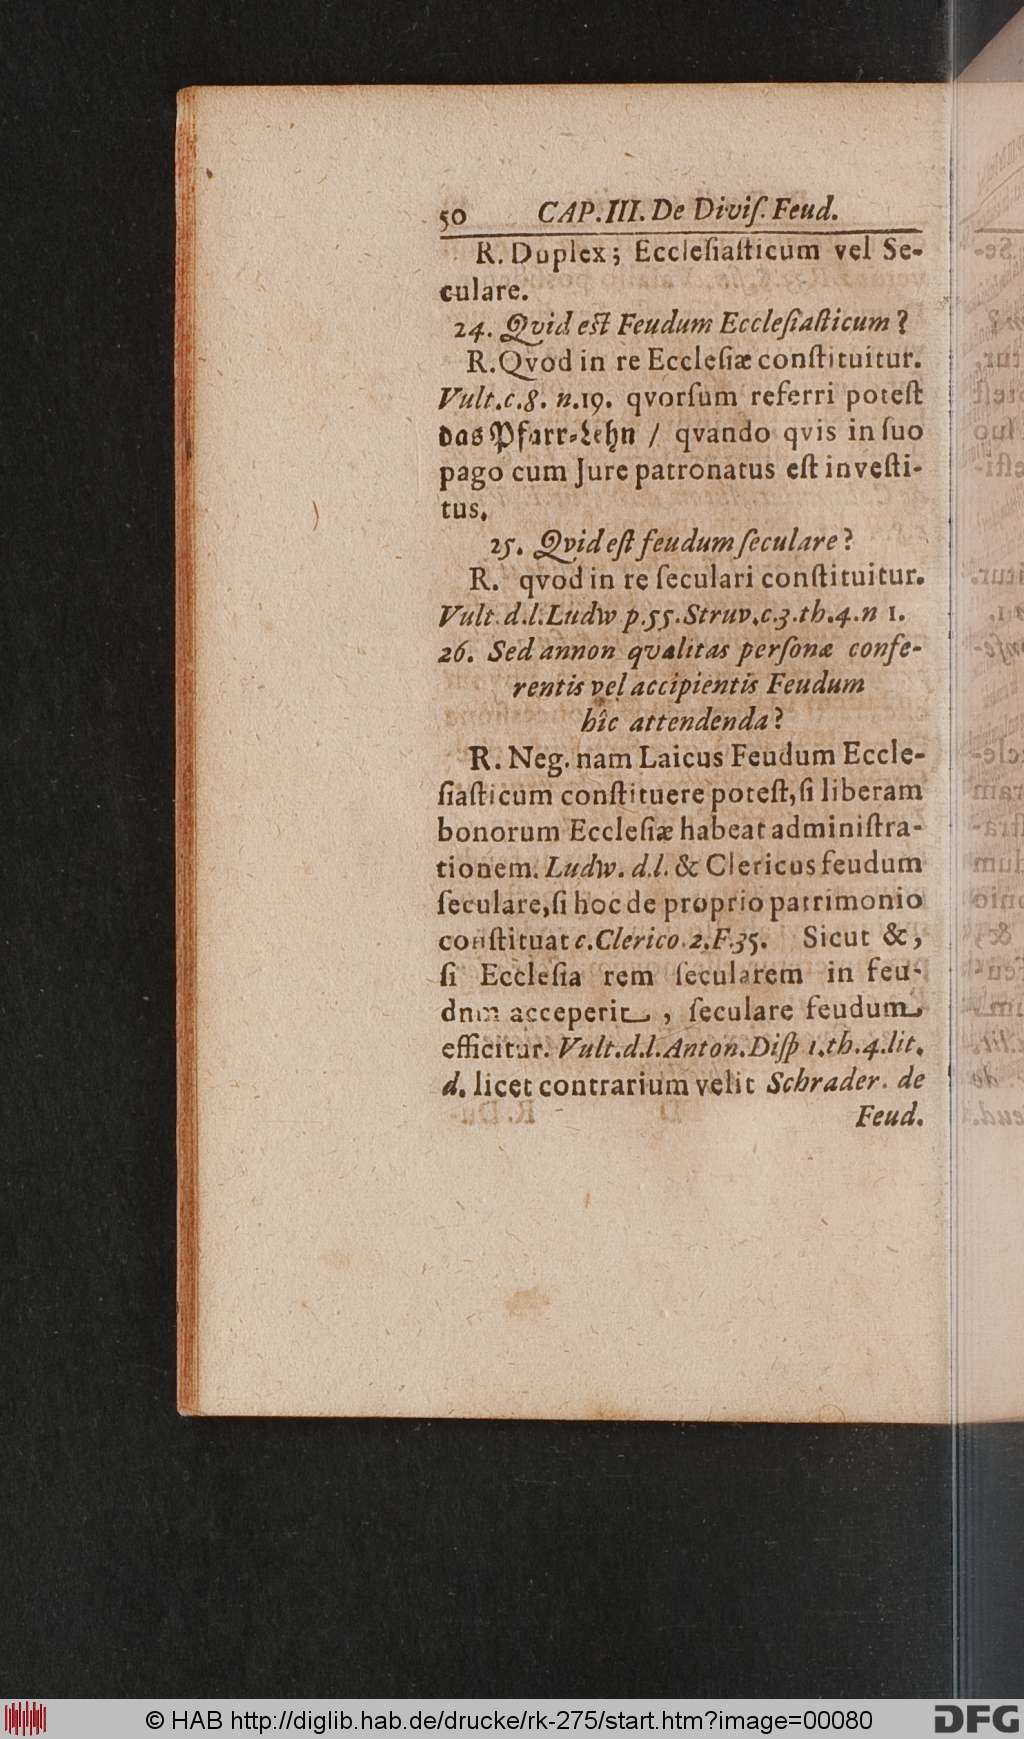 50 CAP.III. De Diviſ. Feud.
R. Duplex; Eccleſiaſticum vel Se-
culare.
24. Qvid eſt Feudum Eccleſiaſticum?
R. Qvod in re Eccleſiæ conſtituitur.
Vult.c.8. n.19. qvorſum referri poteſt
das Pfarr-Lehn / qvando qvis in ſuo
pago cum Jure patronatus eſt inveſti-
tus.
25. Qvid eſt feudum ſeculare?
R. qvod in re ſeculari conſtituitur.
Vult. d.l. Ludw p.55. Struv.c.3.th.4.n 1.
26. Sed annon qvalitas perſonæ confe-
rentis vel accipientis Feudum
hîc attendenda?
R. Neg. nam Laicus Feudum Eccle-
ſiaſticum conſtituere poteſt, ſi liberam
bonorum Eccleſiæ habeat adminiſtra-
tionem. Ludw. d.l. & Clericus feudum
ſeculare, ſi hoc de proprio patrimonio
conſtituat c. Clerico. 2.F.35. Sicut &,
ſi Eccleſia rem ſecularem in feu-
dum acceperit, ſeculare feudum
efficitur. Vult.d.l. Anton. Diſp 1.th.4.lit.
d. licet contrarium velit Schrader. de
Feud.
© HAB http://diglib.hab.de/drucke/rk-275/start.htm?image=00080
DFG